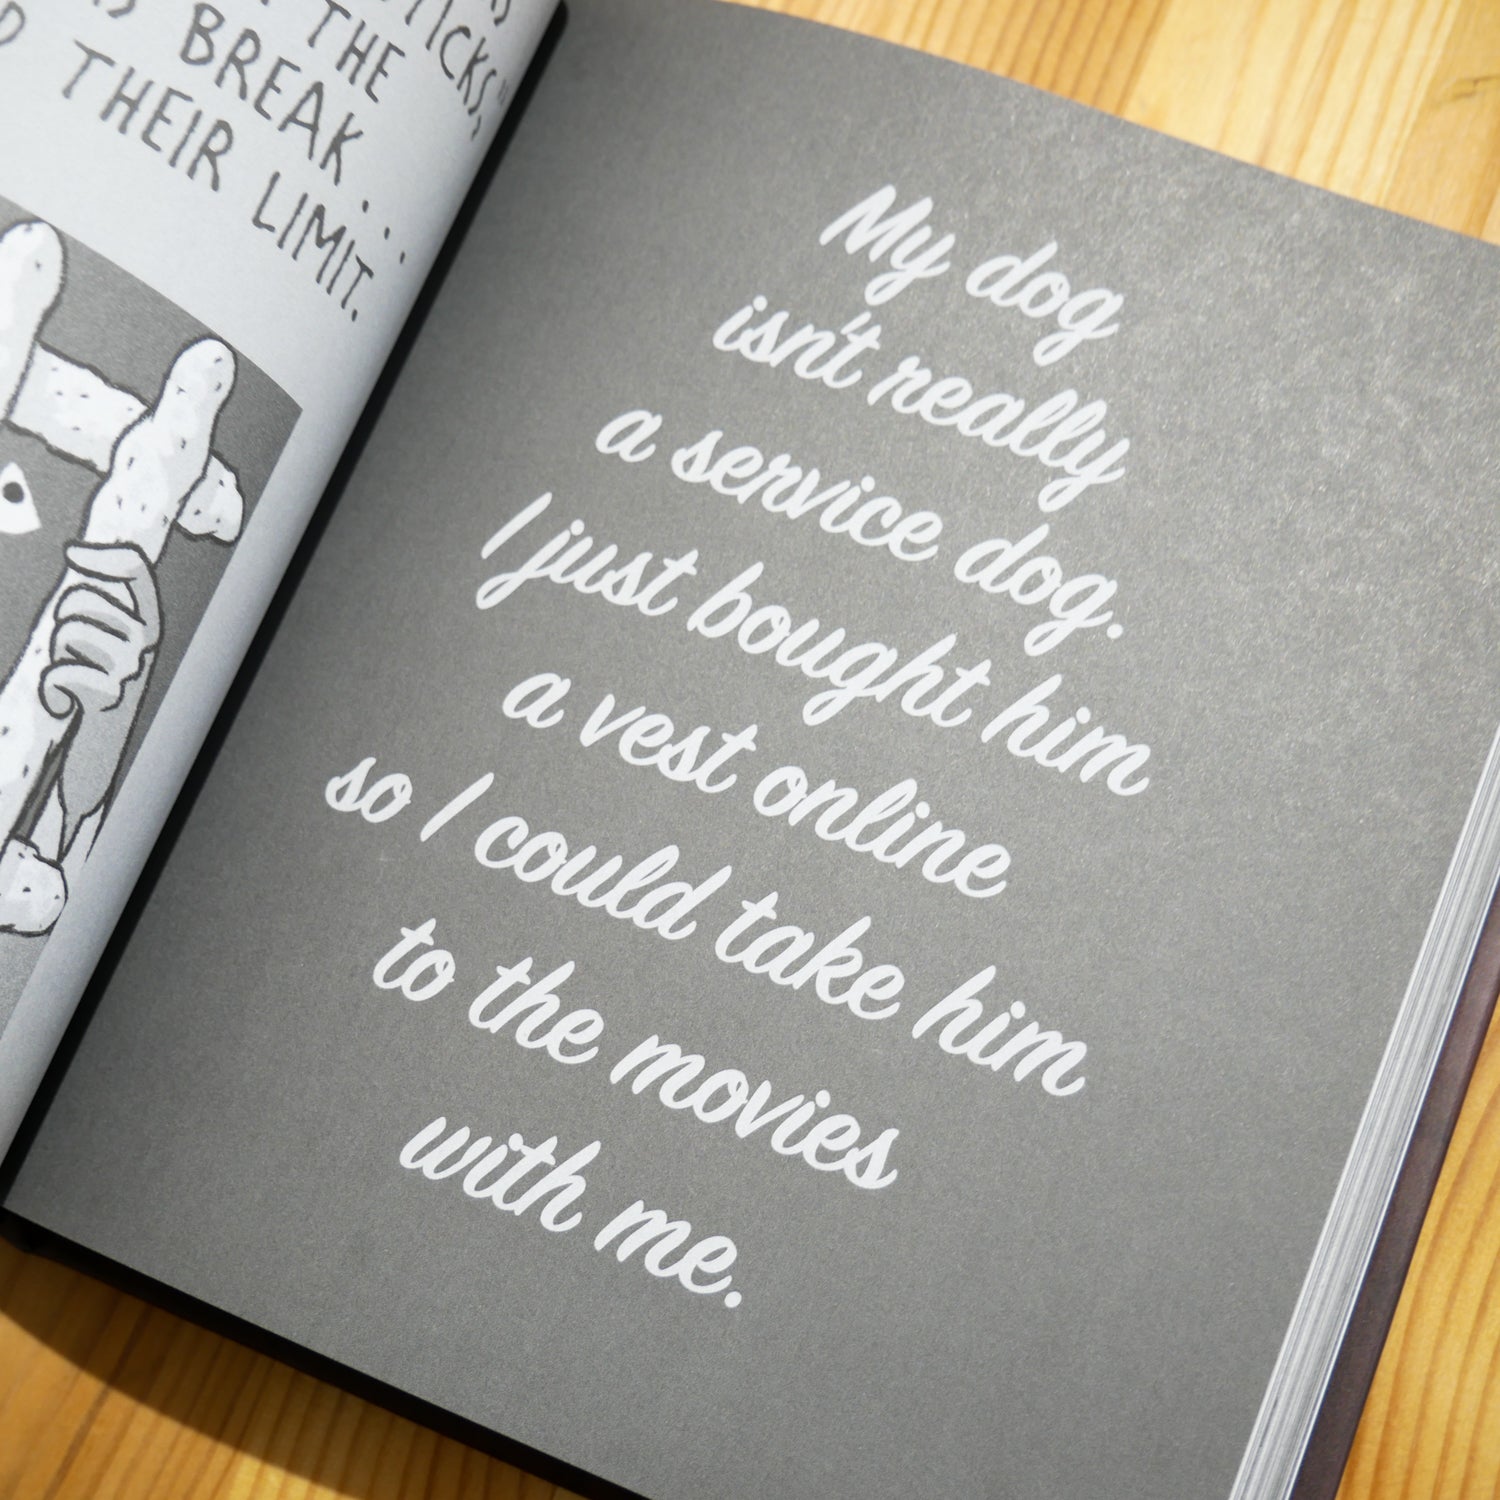 TICKS,"
THE
BREAK...
THEIR LIMIT.
My dog
isn't really
a service dog.
I just bought him
a vest online
so I could take him
to the movies
with me.